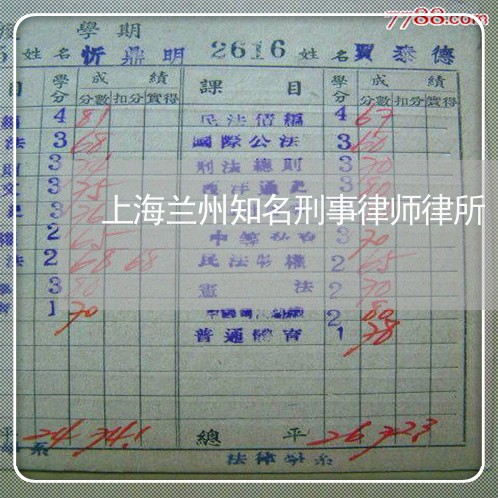 7788.com
學期
姓名 忻鼎明 2616 姓名 賈泰德
目 學分 成績 課目 學分 成績
分數 扣分 實得 分數 扣分 實得
4 81 民法債編 4 67
法 3 68 國際公法 3 60
則 3 刑法總則 3 70
文 3 75 西洋通史 3 80
上海兰州知名刑事律师律所
2 65 3 70
法 2 68 68 民法物權 2 65
3 80 憲法 2 70
育 1 70 2 80
普通體育 1 78
平 24 74.1 總平 26 72.3
系 法律學系